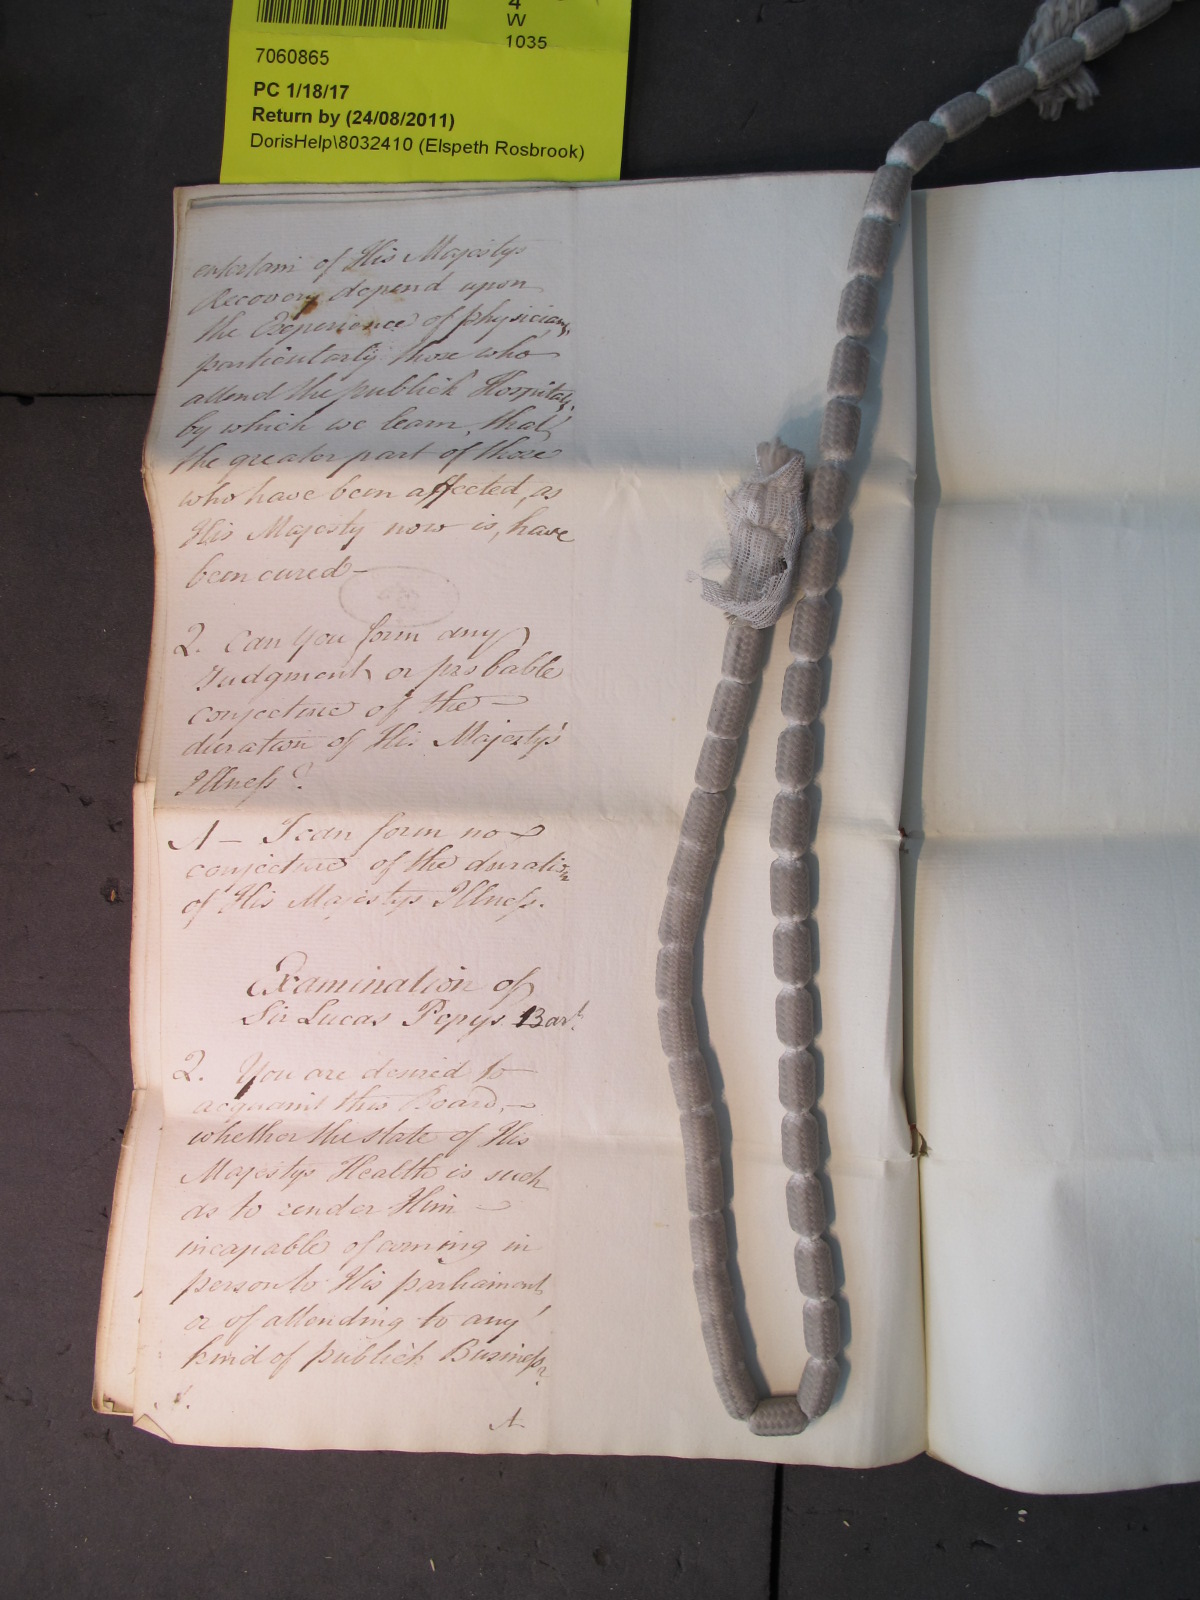 4
W
1035
7060865
PC 1/18/17
Return by (24/08/2011)
DorisHelp\8032410 (Elspeth Rosbrook)
entertain of His Majestys
Recovery depend upon
the Experience of physicians,
particularly those who
attend the publick Hospitals,
by which we learn, that
the greater part of those
who have been affected, as
His Majesty now is, have
been cured —
Q. Can you form any
Judgment or probable
conjecture of the —
duration of His Majesty's
Illness?
A — I can form no —
conjecture of the duration
of His Majestys Illness.
Examination of
Sir Lucas Pepys Bart
Q. You are desired to —
acquaint this Board, —
whether the state of His
Majestys Health is such
as to render Him —
incapable of coming in
person to His parliament
or of attending to any
kind of publick Business?
A